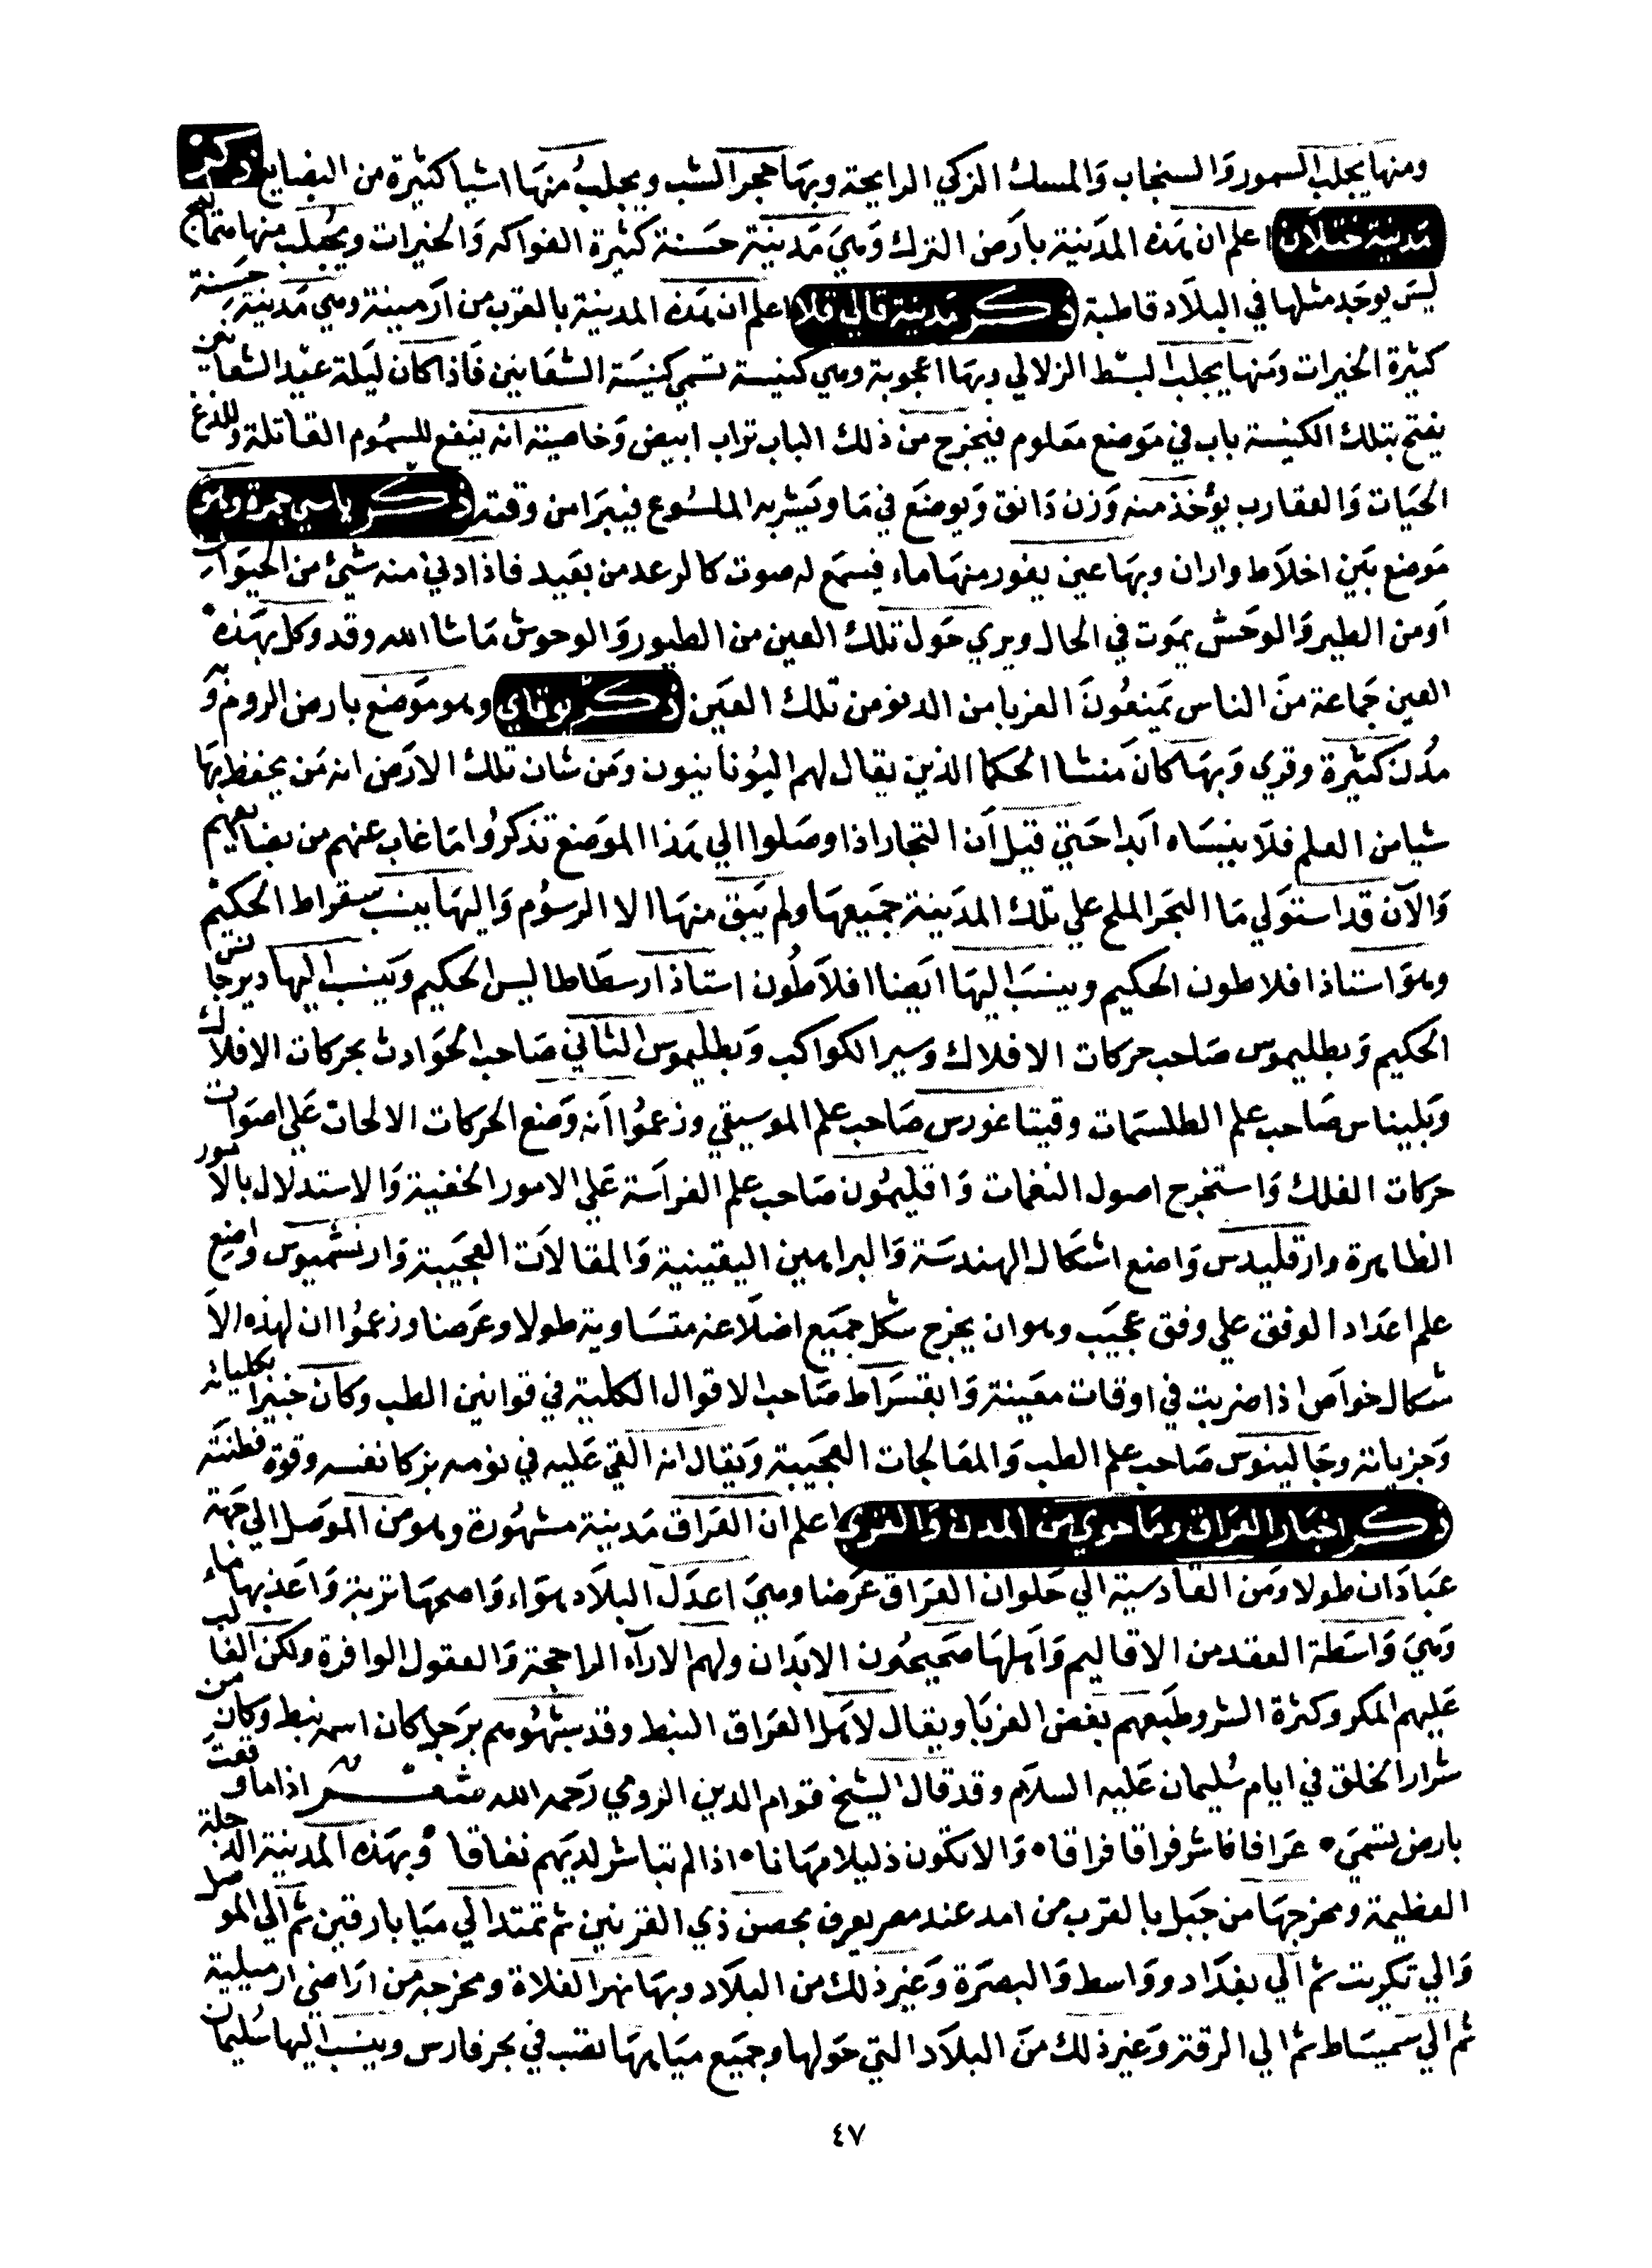 ومنها يجلب السمور وَالسنجاب وَالمسك الزكي الرايحة وبهَا حجر الشب ويجلبُ منهَا اشيا كثيرة من البضايع ذكر
مَدينة ختلان اعلم ان هذه المدَينة بارَض الترك وَهيَ مَدينة حسَنة كثيرة الفواكه وَالخيرات ويُجلب منها متاع
ليسَ يوجَد مثلها في البلَاد قاطبة ذكر مَدينة قالي قلا اعلم ان هذه المدينة بالقرب من ارَمينة وهي مَدينة حسَنة
كثيرة الخيرات ومَنها يجلب البسْط الزلالي وبهَا اعجوبة وهي كنيسة تسَمي كنيسَة الشعَانين فَاذا كان ليَلة عيْد الشعانين
يفتح بتلك الكنيسة باب في مَوضع معَلوم فيخرج من ذلك الباب تراب ابيض وَخاصيته انه ينفع للسمُوم القاتلة وللدغ
الحيَات وَالعقارب يؤخذ منه وَزن دَانق وَيوضَع في مَا وَيشربه الملسُوع فيبرَا من وقته ذكر ياسي جمرة وهوَ
مَوضع بَين اخلَاط واران وبهَا عين يفور منهَا ماء فيسمَع له صوت كالرعد من بعَيد فاذا دني منه شيْ من الحيَوان
اوَمن الطير وَالوحَش يمَوت في الحال ويري حَول تلك العين من الطيور وَالوحوش مَا شا الله وقد وكل بهَذه
العين جَماعة منَ الناس يمَنعُونَ الغربا من الدنو من تلك العيَن ذكر يوناي وهو موَضع بارض الروم وَ
مُدن كثيرة وقري وَبهَا كان مَنشا الحكما الذين يقال لهم اليُونانيون ومَن شان تلك الارَض انه مَن يحفظ بهَا
شيا من العلم فلَا ينسَاه ابَدا حَتي قيل اَن التجار اذا وصَلوا الي هَذا الموَضع تذكرُوا مَا غاب عنهم من بضايعهم
وَالآن قد استوَلي مَا البحَر الملح علي تلك المدَينة جمَيعهَا ولم يَبق منهَا الا الرسوُم وَاليهَا ينسَب سقراط الحكيم
وهوَ استاذ افلاطون الحكيم وينسَبَ اليهَا ايَضا افلَاطُون استاذ ارسطَاطاليس الحكيم وَينسَب اليها ديرجانس
الحكيم وَبطليموس صَاحب حركات الافلاك وسير الكواكب وَبطليموس الثاني صَاحب الحَوادث بحركات الافلاك
وَبليناس صَاحب علم الطلسمَات وقيثاغورس صَاحب علم الموسيقي وزعمُوا اَنه وَضع الحركات الالحان عَلي اصوَات
حركات الفلك وَاستخرج اصول النغمات وَاقليمُون صَاحب علم الفراسَة عَلي الامور الخفية وَالاستدلال بالامور
الظاهرة وارقليدس وَاضع اشكَال الهندسَة وَالبراهين اليقينية وَالمقالَات العجَيبة وَارشميوس واضع
علم اعدَاد الوفق علي وفق عجيَب وهو ان يخرج شكل جميَع اضلَاعه متسَاوية طولا وعرَضا وزعمُوا ان لهذه الاَ
شكال خواَص اذا ضربت في اوقات معَينة وَابقسرَاط صَاحب الاقوال الكلية في قوانين الطب وَكان خبيرا بكلياته
وَجزياته وجَالينوَس صَاحب علم الطب وَالمعَالجات العجَيبة وَيقال انه القي عَليه في نومه بزكا نفسه وقوة فطنتَه
ذكر اخبَار العرَاق ومَا حوي من المدن وَالقري اعلم ان العَراق مَدينة مشهُورة وهو من الموَصل الي جهَة
عبَادَان طولا ومَن القادسية الي حَلوان العرَاق عرَضا وهيَ اعدَل البلَاد هوَاء وَاصحهَا تربة وَاعذبها ماء
وَهيَ وَاسَطة العقد من الاقاليم وَاهَلهَا صَحيحُون الابَدان ولهم الارآء الراجحة وَالعقول الوافرة ولكن الغالب
عَليهم المكر وكثرة الشر وطبَعهم بغَض الغربَا ويقال لاهَل العرَاق النبط وقد سبهُوهم برَجل كان اسمه نبط وكان من
شرار الخلق في ايام سُليمان عَليه السلَام وقد قال الشيخ قوام الدين الرومي رَحمه الله شعر اذا ما وقعت
بارض تسَميَ عرَاقا فاشر فراقا فراقا وَالا تكون ذليلا مهَانا اذا لم تباشر لديَهم نفاقا وبهَذه المدَينة الدجلة
العظيمة ومخرجهَا من جَبل بالقرب من امد عند مصر يعرف بحصن ذي القرنين ثم تمتد الي ميَا بارقين ثم الي الموصل
وَالي تكريت ثم الي بغدَاد ووَاسط وَالبصَرة وَغير ذلك من البلَاد وبهَا نهر الفلاة ومخرجه من ارَاضي ارميلية
ثم الي سميسَاط ثم الي الرقة وَغير ذلك منَ البلَاد التي حَولها وجميَع ميَاههَا تصب في بحر فارس وينسَب اليها سُليمان
٤٧